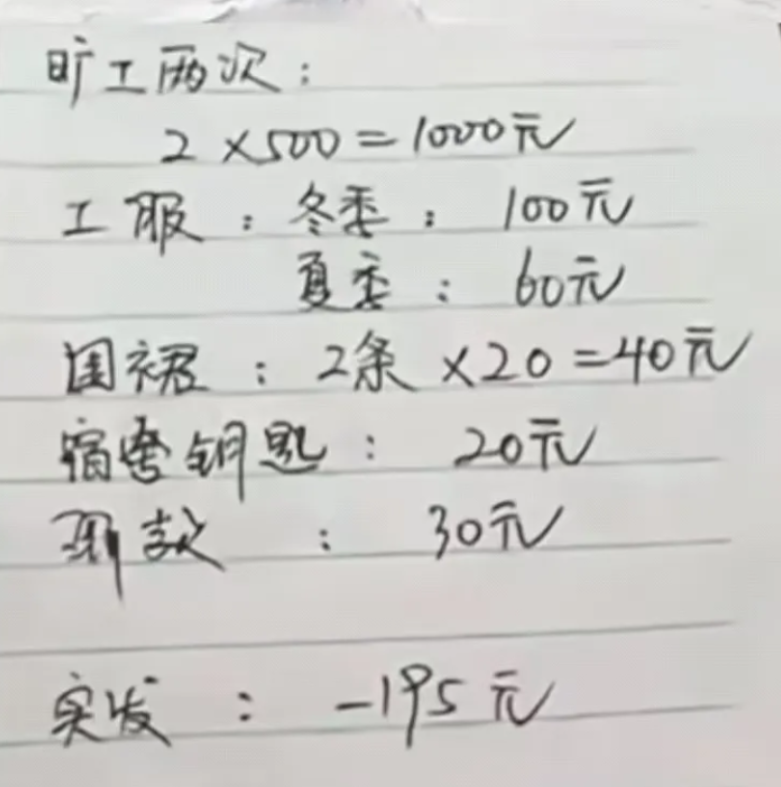 旷工两次：
2×500=1000元
工服：冬季：100元
夏季：60元
围裙：2条×20=40元
宿舍钥匙：20元
罚款：30元
实发：-195元